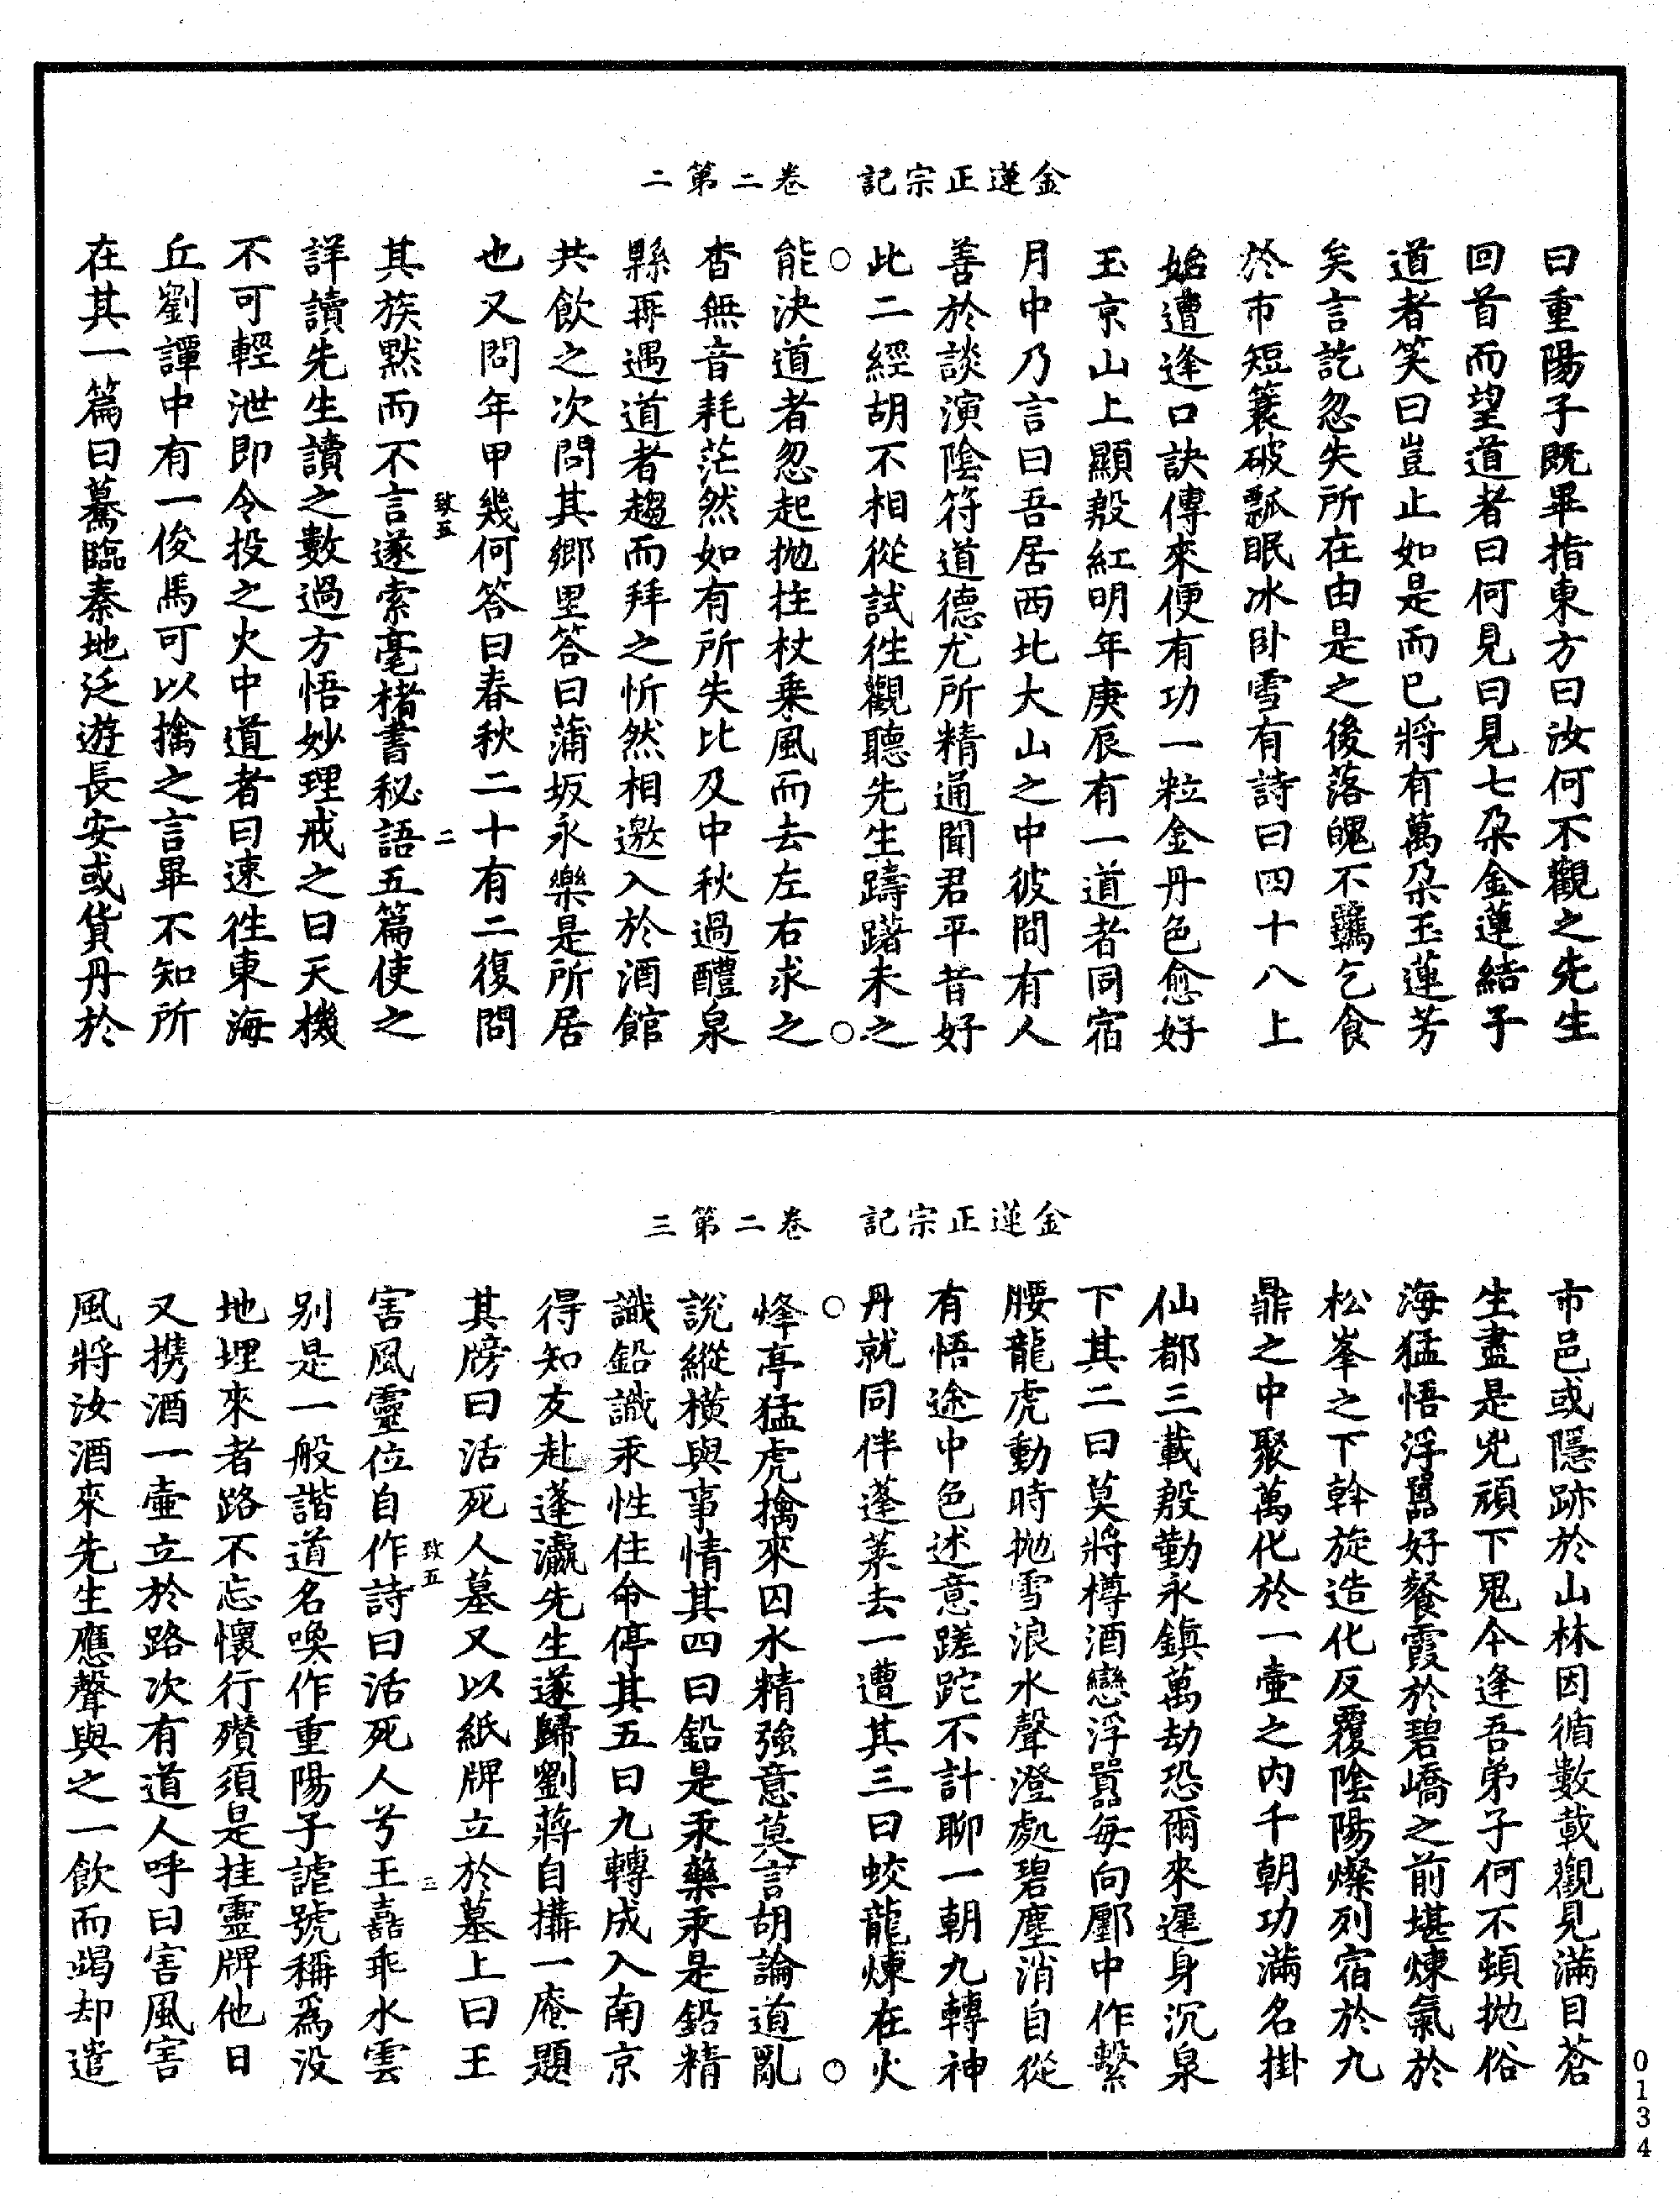 金蓮正宗記　卷二第二
曰重陽子既畢指東方曰汝何不觀之先生
回首而望道者曰何見曰見七朶金蓮結子
道者笑曰豈止如是而已將有萬朶玉蓮芳
矣言訖忽失所在由是之後落魄不羈乞食
於市短蓑破瓢眠冰卧雪有詩曰四十八上
始遭逢口訣傳來便有功一粒金丹色愈好
玉京山上顯殷紅明年庚辰有一道者同宿
月中乃言曰吾居西北大山之中彼間有人
善於談演陰符道德尤所精通聞君平昔好
此二經胡不相從試徃觀聽先生躊躇未之
能決道者忽起抛拄杖乗風而去左右求之
杳無音耗茫然如有所失比及中秋過醴泉
縣再遇道者趨而拜之忻然相邀入於酒館
共飲之次問其鄉里答曰蒲坂永樂是所居
也又問年甲幾何答曰春秋二十有二復問
致五　二
其族黙而不言遂索毫楮書秘語五篇使之
詳讀先生讀之數過方悟妙理戒之曰天機
不可輕泄即令投之火中道者曰速徃東海
丘劉譚中有一俊馬可以擒之言畢不知所
在其一篇曰驀臨秦地泛遊長安或貨丹於
金蓮正宗記　卷二第三
市邑或隱跡於山林因循數載觀見滿目蒼
生盡是兇頑下鬼今逢吾弟子何不頓抛俗
海猛悟浮囂好餐霞於碧嶠之前堪煉氣於
松峯之下斡旋造化反覆陰陽燦列宿於九
鼎之中聚萬化於一壷之内千朝功滿名掛
仙都三載殷勤永鎮萬劫恐爾來遲身沉泉
下其二曰莫將樽酒戀浮囂每向鄽中作繫
腰龍虎動時抛雪浪水聲澄處碧塵消自從
有悟途中色述意蹉跎不計聊一朝九轉神
丹就同伴蓬萊去一遭其三曰蛟龍煉在火
烽亭猛虎擒來囚水精強意莫言胡論道亂
說縱橫與事情其四曰鉛是汞藥汞是鉛精
識鉛識汞性住命停其五曰九轉成入南京
得知友赴蓬瀛先生遂歸劉蔣自搆一庵題
其牓曰活死人墓又以紙牌立於墓上曰王
致五　三
害風靈位自作詩曰活死人兮王嚞乖水雲
别是一般諧道名喚作重陽子謔號稱爲没
地埋來者路不忘懷行殯須是挂靈牌他日
又携酒一壷立於路次有道人呼曰害風害
風將汝酒來先生應聲與之一飲而竭却遣
0134